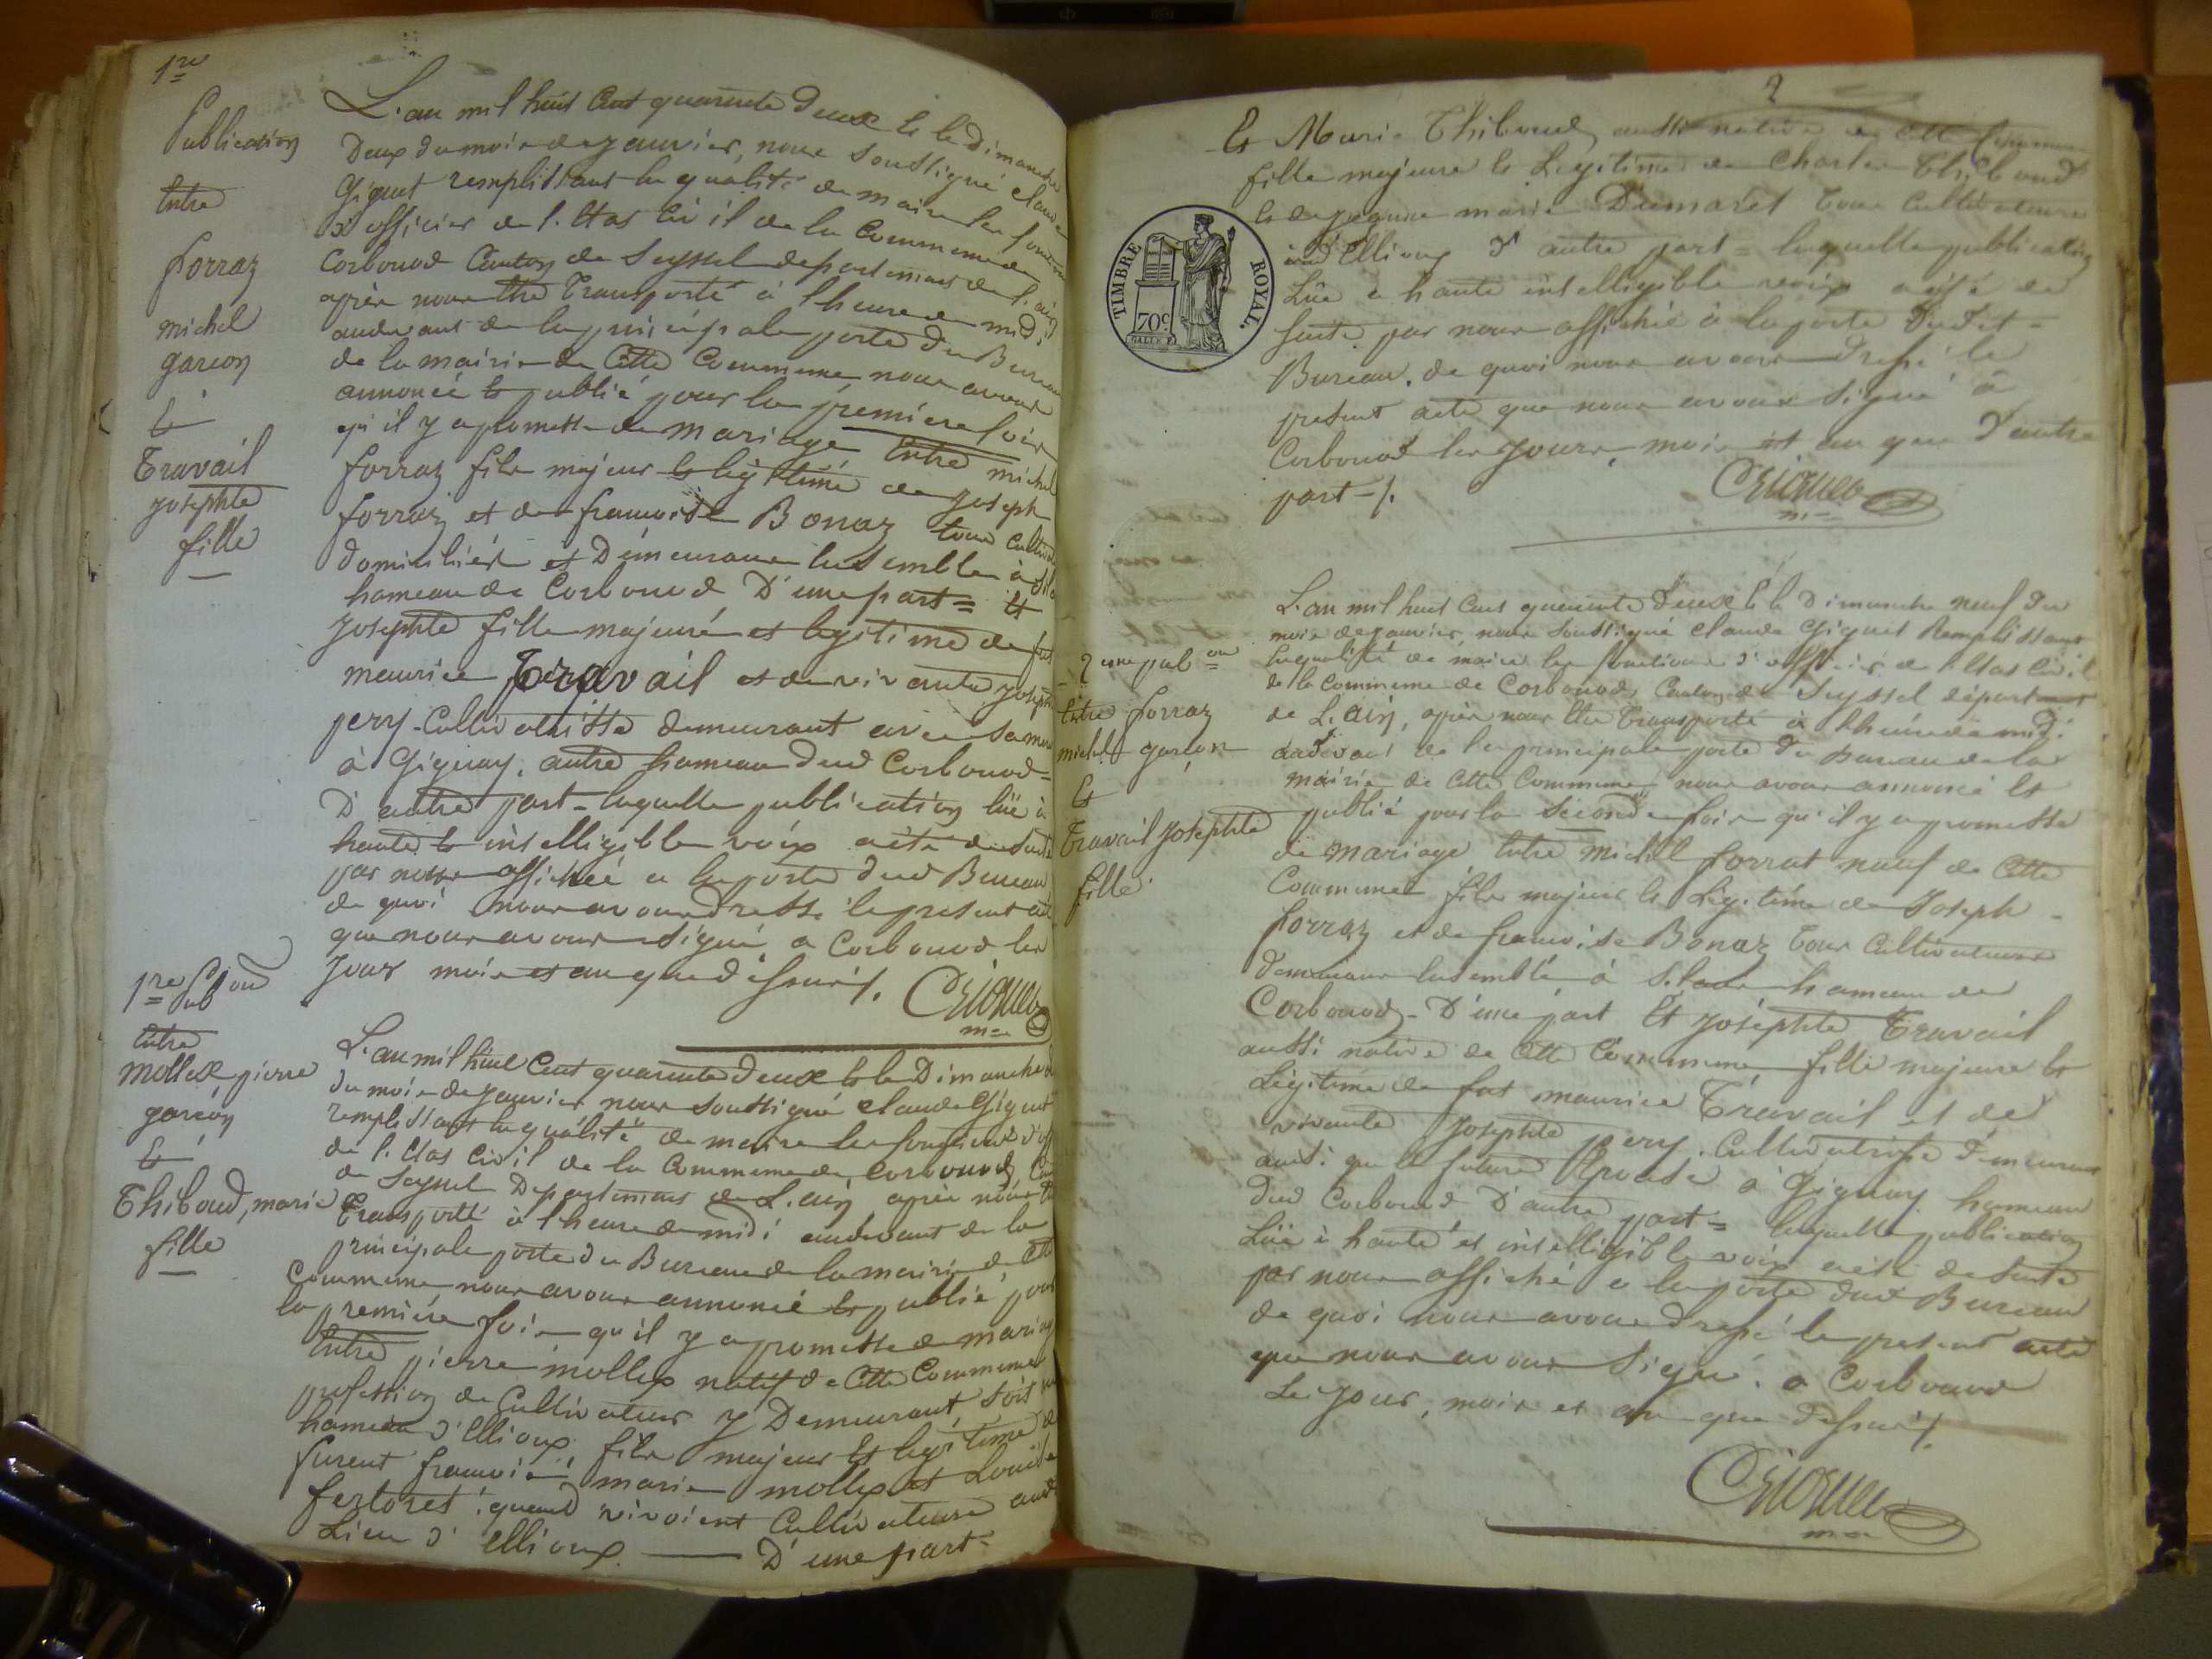 1re
Publication
Entre
forraz
michel
garcon
Et
Travail
josephte
fille
L'an mil huit Cent quarente deux et le dimanche
Deux du mois de janvier, nous soussigné claude
Giguet remplissant la qualité de maire les fonctions
d'officier de l'Etat Civil de la Commune de
Corbonod Canton de Seyssel departement de l'ain
après nous être Transporté à l'heure de midi
audevant de la principale porte du Bureau
de la mairie de Cette Commune nous avons
annoncé et publié pour la première fois
qu'il y a promesse de mariage Entre michel
forraz fils majeur et legitime de joseph
forraz et de francoise Bonaz tous
domiciliés et Demeurans Ensemble à
hameau de Corbonod D'une part = Et
Josephte fille majeure et legitime de feu
maurice Travail et de vivante joseph
pery Cultivatrisse demeurant avec sa mere
à Gignay, autre hameau dud Corbonod =
D'autre part = laquelle publication lüe à
haute et intelligible voix a été de suite
par nous affichée a la porte dud Bureau
de quoi nous avons dressé le present acte
que nous avons signé a Corbonod les
jour mois et an que dessus /.
mre
1re Pub on
Entre
mollex pierre
garcon
Et
Thiboud, marie
fille
L'an mil huit Cent quarente deux et le Dimanche
du mois de janvier nous soussigné claude Giguet
remplissant la qualité de maire les fonctions
de l'Etat Civil de la Commune de Corbonod
de Seyssel Departement de L'ain après nous
Transporté à l'heure de midi audevant de la
principale porte du Bureau de la mairie de Cette
Commune nous avons annoncé et publié pour
la première fois qu'il y a promesse de mariage
Entre pierre mollex natif de Cette Commune
profession de Cultivateur y Demeurant,
hameau d'Ellioux fils majeur et legitime
furent marie mollex et Louise
quand vivoient Cultivateurs
Lieu d'ellioux — D'une part =
2
Et Marie Thiboud aussi native de Cette Commune
fille majeure et Legitime de Charles Thiboud
et de marie Dumaret Tous Cultivateurs
aud Ellioux d'autre part = laquelle publication
Lüe a haute intelligible voix a été de
suite par nous affichée à la porte dudit =
Bureau. de quoi nous avons dressé le
present acte que nous avons signé à
Corbonod les jours, mois et an que d'autre
part /.
TIMBRE ROYAL.
70c
mre
2eme pub on
Entre forraz
michel garcon
Et
Travail Josephte
fille
L'an mil huit Cent quarente deux et le Dimanche neuf du
mois de janvier, nous soussigné claude Giguet Remplissant
la qualité de maire les fonctions d'officier de l'Etat Civil
de la Commune de Corbonod, Canton de Seyssel département
de L'ain, après nous être Transporté à l'heure de midi
audevant de la principale porte du Bureau de la
mairie de Cette Commune, nous avons annoncé Et
publié pour la séconde fois qu'il y a promesse
de mariage Entre michel forrat natif de Cette
Commune fils majeur et Légitime de Joseph
forraz et de francoise Bonaz Tous Cultivateurs
demeurans Ensemble, à hameau de
Corbonod - D'une part Et Joséphte Travail
aussi native de Cette Commune fille majeure et
Légitime de feu maurice Travail et de
vivante Josephte pery Cultivatrisse demeurant
ainsi que la future Epouse à Gignay hameau
dud Corbonod D'autre part = laquelle publication
Lüe à haute et intelligible voix a été de suite
par nous affiché a la porte dud Bureau
de quoi nous avons dressé le present acte
que nous avons signé. a Corbonod
Le jour, mois et an que dessus /.
mre